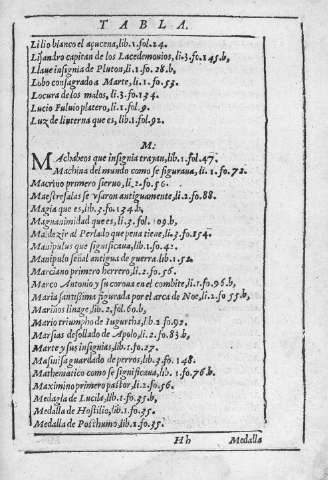 TABLA.
Lilio bianco el açucena, lib.1.fol.24.
Lisandro capitan de los Lacedemonios, li.3.fc.145.b,
Llaue insignia de Pluton, li.1.fo.28.b,
Lobo consagrado a Marte, li.1.fo.53.
Locura de los malos, li.3.fo.134.
Lucio Fuluio platero, lib.1.fol.9.
Luz de linterna que es, lib.1.fol.92.
M:
MAchabeos que insignia trayan, lib.1.fol.47.
Machina del mundo como se figuraua, li.1.fo.72.
Macrino primero sieruo, li.2.fo.56.
Maestresalas se vsaron antiguamente, li.2.fo.88.
Magia que es, lib.3.fo.134.b,
Magnanimidad que es, li.3.fol.109.b,
Maldezir al Perlado que pena tiene, li.3.fo.154.
Manipulus que significaua, lib.1.fo.42.
Manipulo señal antigua de guerra. lib.1.52.
Marciano primero herrero, li.2.fo.56.
Marco Antonio y su corona en el combite, li.1.fo.96.b,
Maria santissima figurada por el arca de Noe, li.2.fo 55.b,
Marinos linage, lib.2.fol.60.b,
Mario triumpho de Iugurtha, lib.2.fo.92.
Marsias desollado de Apolo, li.2.fo.83.b,
Marte y sus insignias, lib.1.fo.27.
Masinisa guardado de perros, lib.3.fo.148.
Mathematico como se significaua, lib.1.fo.76.b.
Maximino primero pastor, li.2.fo.56.
Medagla de Lucila, lib.1.fo.35.b,
Medalla de Hostilio, lib.1.fo.35.
Medalla de Posthumo, lib.1.fo.35.
Hh Medalla